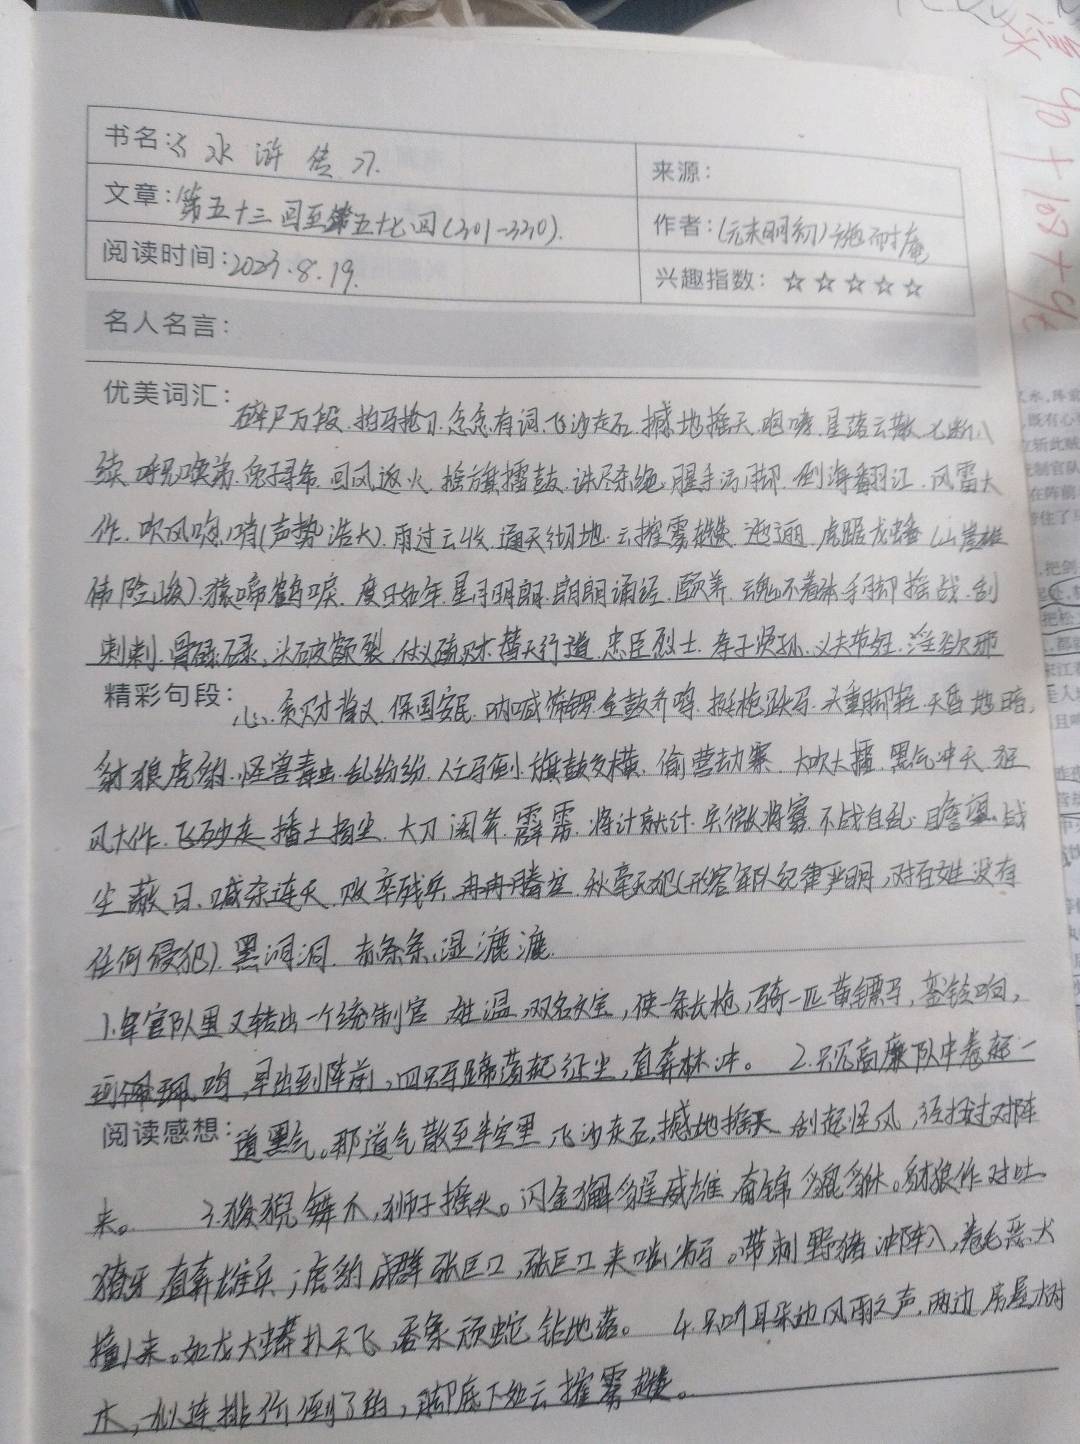 书名:《水浒传》.
来源:
文章:第五十三回至第五十七回(301-330).
作者:(元末明初)施耐庵
阅读时间:2023.8.19.
兴趣指数:☆☆☆☆☆
名人名言:
优美词汇:
碎尸万段.拍马抢刀.念念有词.飞沙走石.撼地摇天.咽喉.星落云散.七断八
续.呼兄唤弟.觅子寻爷.回风返火.摇旗擂鼓.诛尽杀绝.腥手污脚.倒海翻江.风雷大
作.吹风唿哨(声势浩大).雨过云收.通天彻地.云摧雾趱.迤逦.虎踞龙蟠(山崖雄
伟险峻).猿啼鹤唳.度日如年.星月明朗.朗朗诵经.颐养.魂不着体.手脚摇战.刮
刺刺.骨碌碌.头破额裂.仗义疏财.替天行道.忠臣烈士.孝子贤孙.义夫节妇.淫欲邪
精彩句段:
心.贪财背义.保国安民.呐喊筛锣.金鼓齐鸣.挺枪跃马.头重脚轻.天昏地暗.
豺狼虎豹.怪兽毒虫.乱纷纷.人马倒.旗鼓交横.偷营劫寨.大吹大擂.黑气冲天.狂
风大作.飞砂走 播土扬尘.大刀阔斧.霹雳.将计就计.兵微将寡.不战自乱.瞻望.战
尘蔽日.喊杀连天.败卒残兵.冉冉腾空.秋毫无犯(形容军队纪律严明,对百姓没有
任何侵犯).黑洞洞.赤条条.湿漉漉.
1.军官队里又转出一个统制官,姓温,双名文宝,使一条长枪,骑一匹黄骠马,銮铃响,
珂佩鸣,早出到阵前,四只马蹄荡起征尘,直奔林冲。 2.只见高廉队中卷起一
阅读感想:
道黑气。那道气散至半空里,飞沙走石,撼地摇天,刮起怪风,迳扫过对阵
来。 3.狻猊舞爪,狮子摇头。闪金獬豸逞威雄,奋锦貔貅。豺狼作对吐
獠牙,直奔雄兵;虎豹成群张巨口,张巨口来啮劣马。带刺野猪冲阵入,卷毛恶犬
撞人来。如龙大蟒扑天飞,吞象顽蛇钻地落。 4.只听耳朵边风雨之声,两边房屋树
木,似连排价倒了的,脚底下如云摧雾趱。